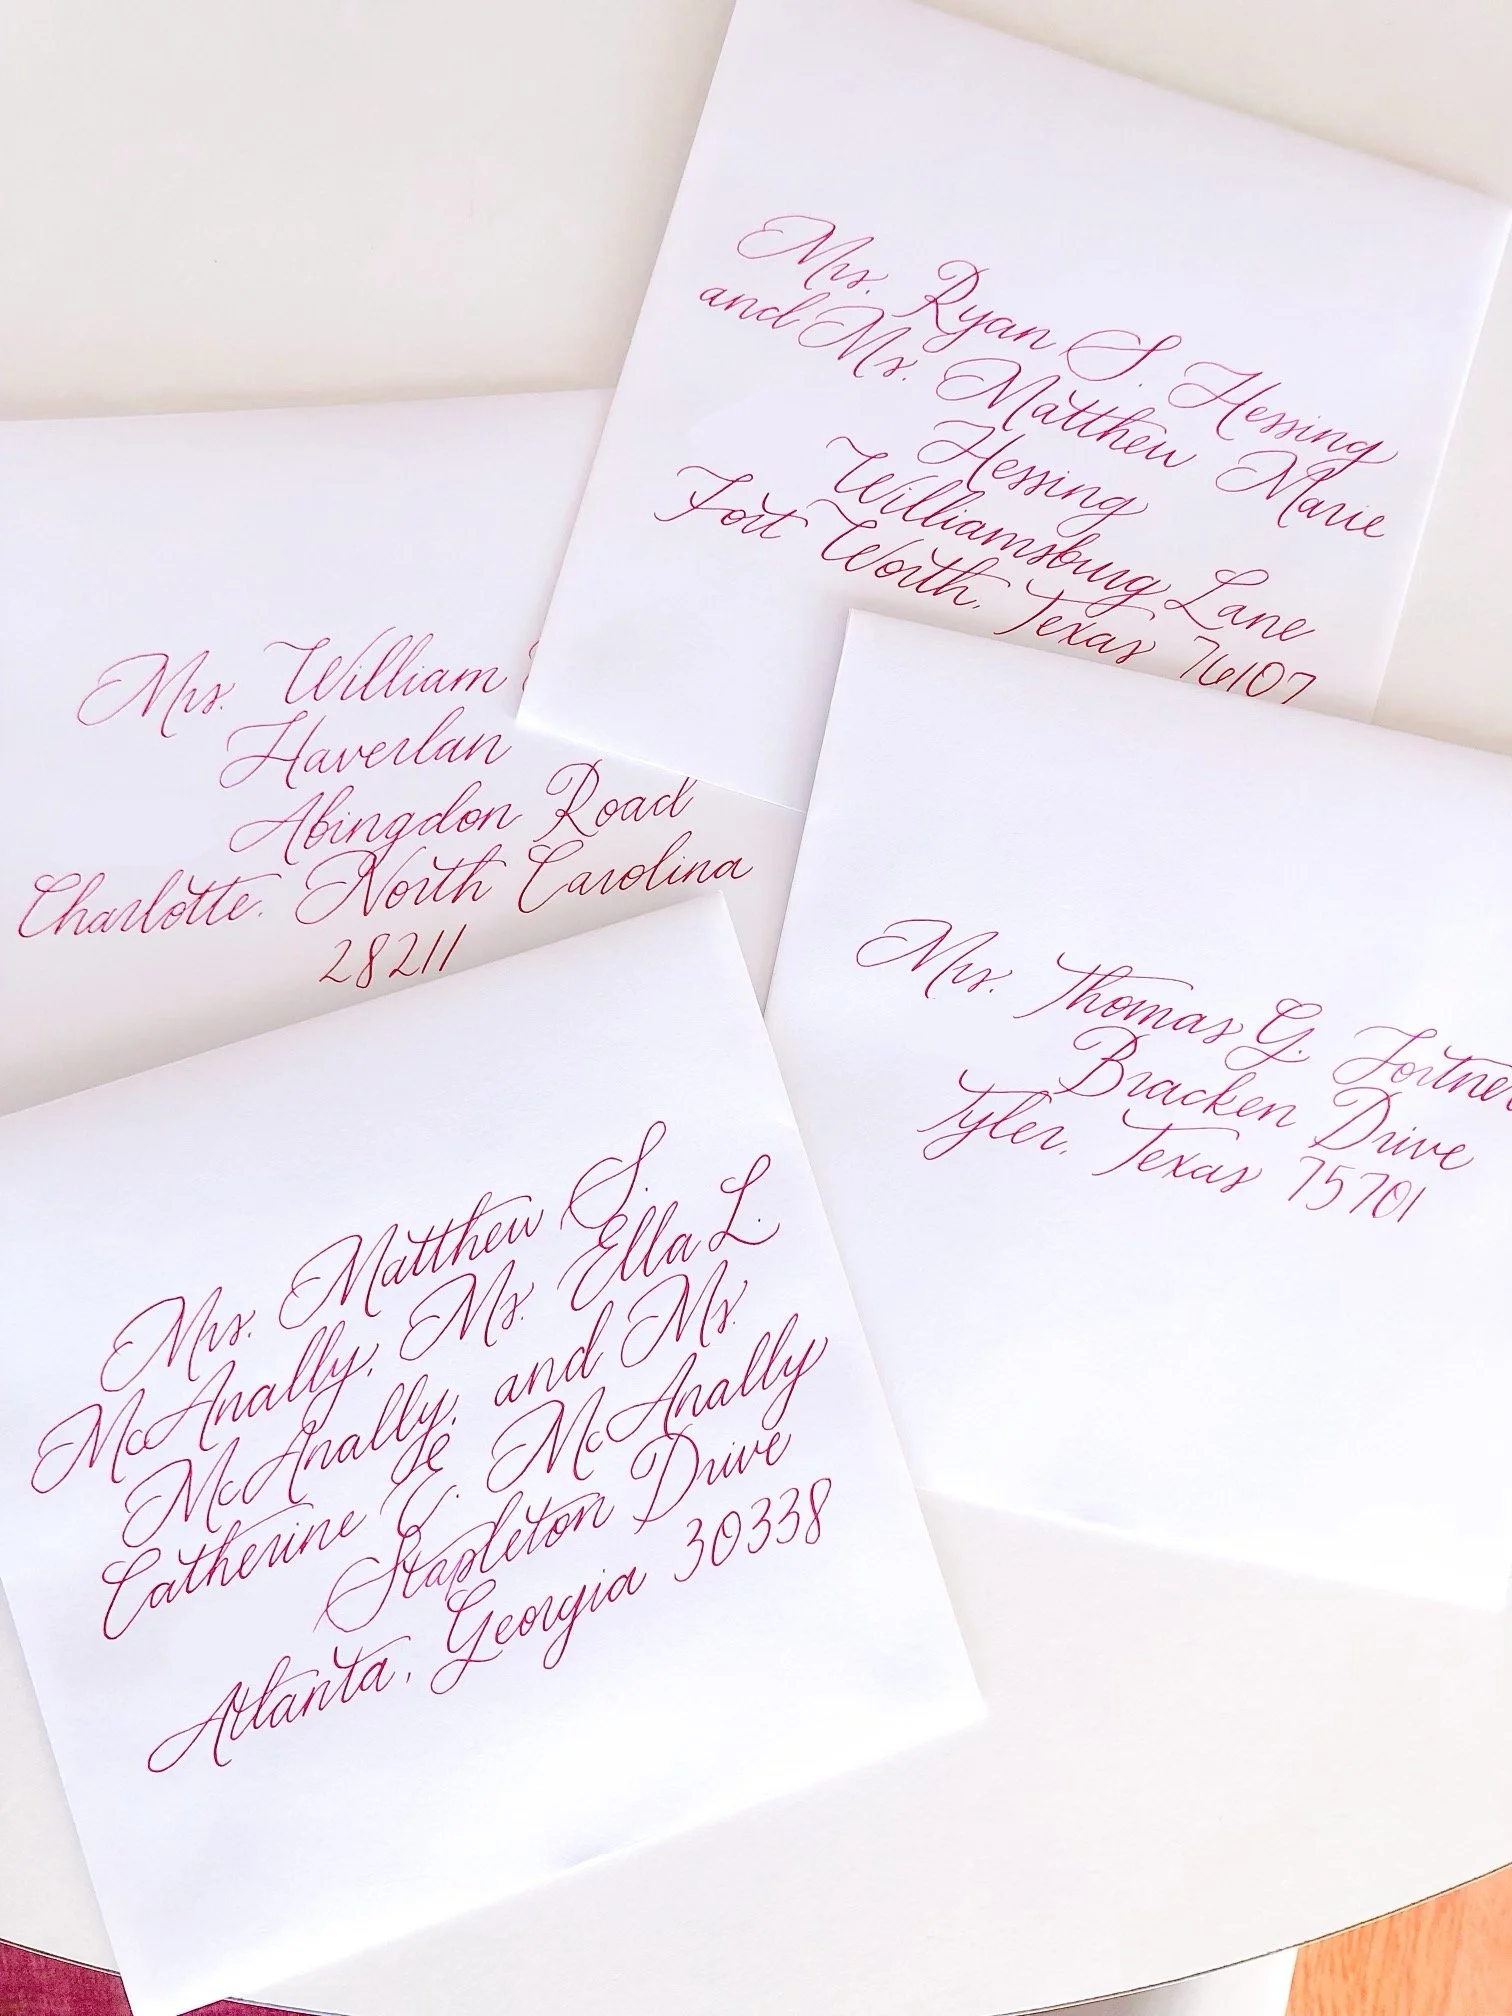 Mrs. Ryan S. Hessing
and Ms. Matthew Marie
Hessing
Williamsburg Lane
Fort Worth, Texas 76107
Mrs. William
Haverlan
Abingdon Road
Charlotte, North Carolina
28211
Mrs. Thomas G. Fortner
Bracken Drive
Tyler, Texas 75701
Mrs. Matthew S.
McAnally, Ms. Ella L.
McAnally, and Ms.
Catherine E. McAnally
Stapleton Drive
Atlanta, Georgia 30338